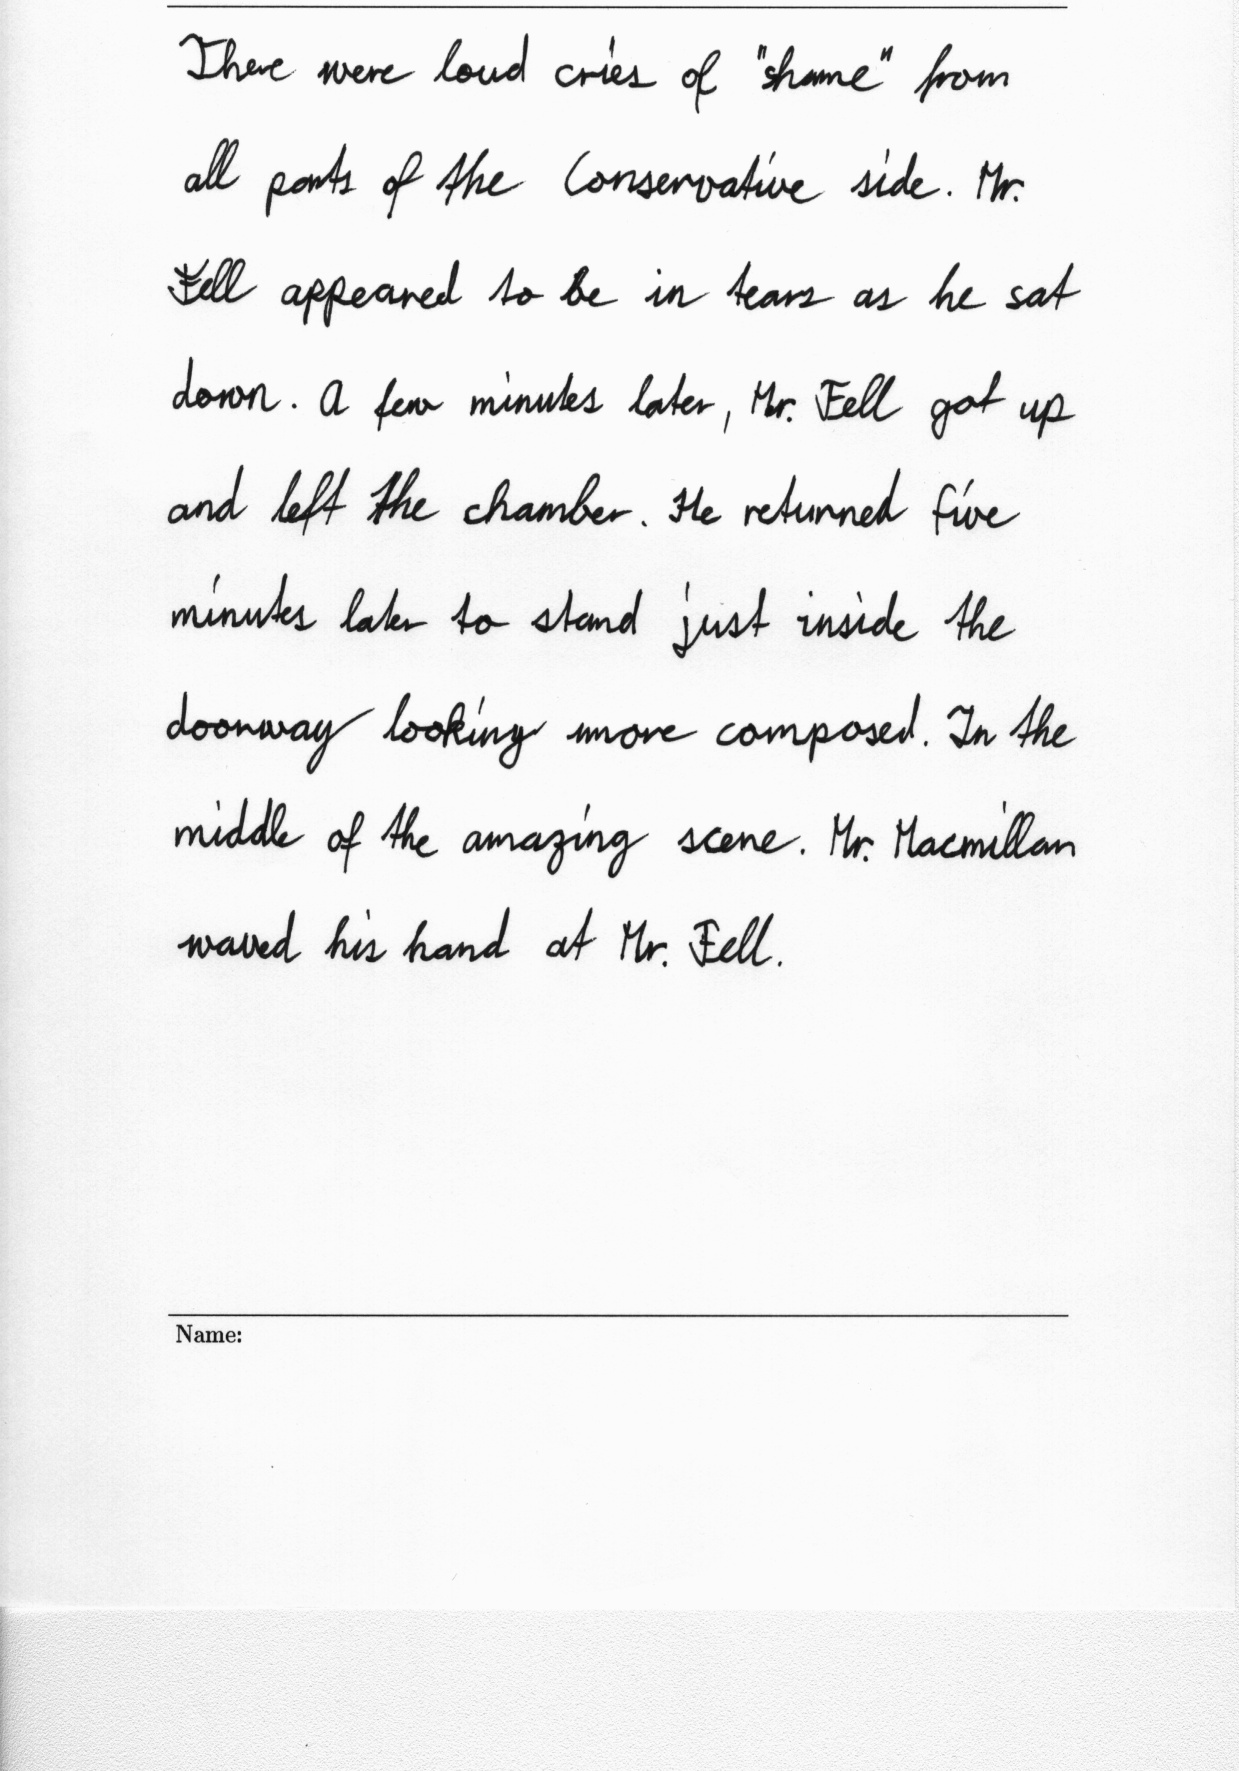 There were loud cries of "shame" from
all parts of the Conservative side. Mr.
Fell appeared to be in tears as he sat
down. A few minutes later, Mr. Fell got up
and left the chamber. He returned five
minutes later to stand just inside the
doorway looking more composed. In the
middle of the amazing scene. Mr. Macmillan
waved his hand at Mr. Fell.
Name: